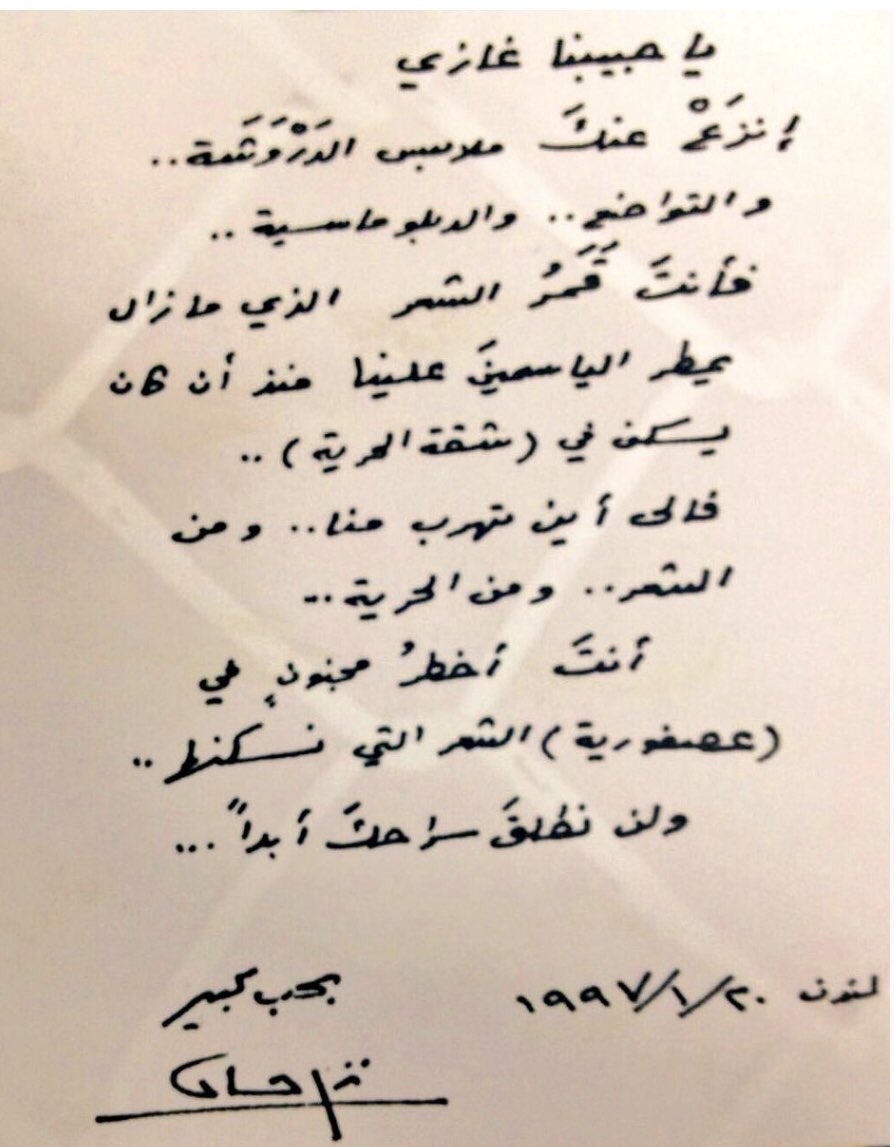 يا حبيبنا غازي
إنزَعْ عنكَ ملابس الدَرْوَشَة ..
والتواضع .. والدبلوماسية ..
فأنتَ قَمَرُ الشعر الذي مازال
يمطر الياسمينَ علينا منذ أن كان
يسكن في (شقة الحرية) ..
فالى أين تهرب منا .. ومن
الشعر .. ومن الحرية ...
أنتَ أخطرُ مجنونٍ في
(عصفورية) الشعر التي نسكنها ..
ولن نطلقَ سراحكَ أبداً ...
لندن ٢٠/١/١٩٩٧
بحب كبير
نزار قباني